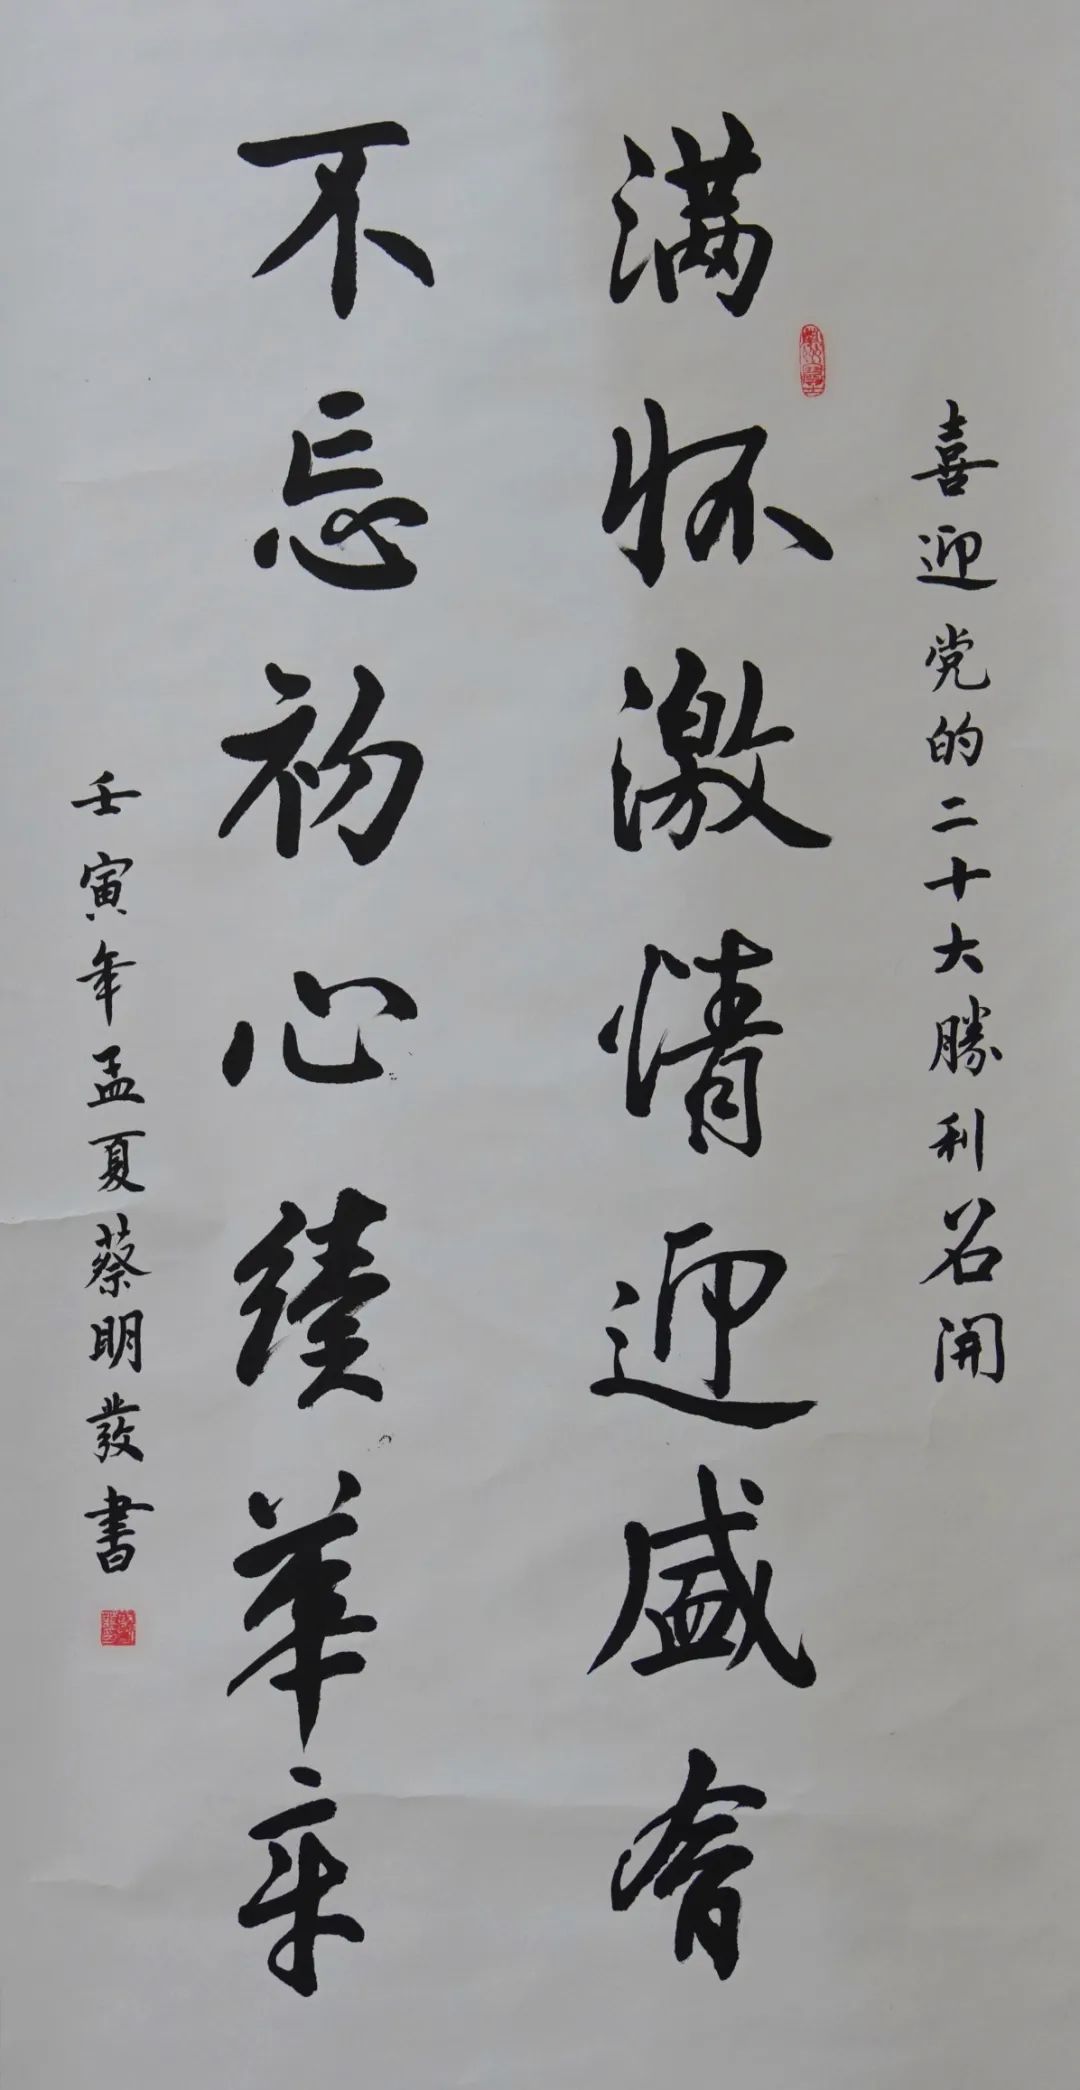 喜迎党的二十大勝利召開
满怀激情迎盛會
不忘初心续華章
壬寅年孟夏蔡明發書